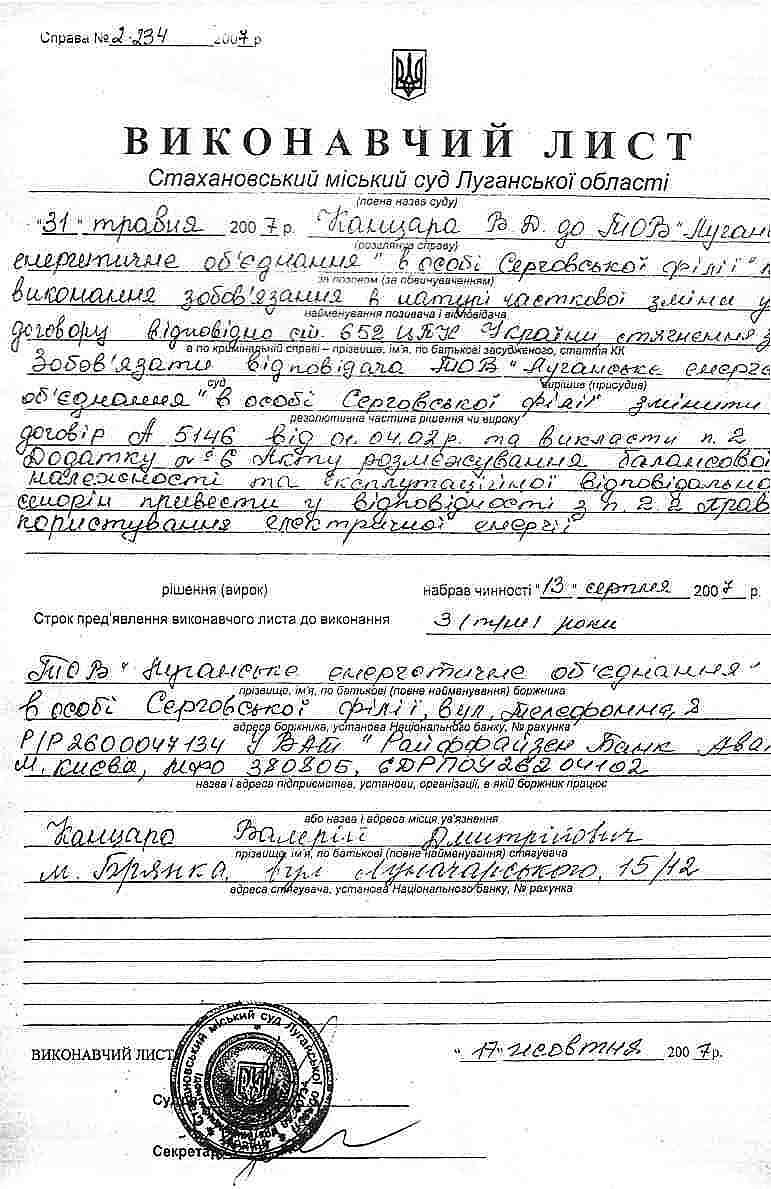 Справа № 2-234 2007 р
ВИКОНАВЧИЙ ЛИСТ
Стахановський міський суд Луганської області
(повна назва суду)
"31" травня 2007 р. Канцара В.Д. до ТОВ "Луган
(розглянув справу)
енергетичне об'єднання" в особі Серговської філії"
за позовом (за обвинуваченням)
виконання зобов'язання в натурі часткової зміни у
найменування позивача і відповідача
договору відповідно ст. 652 ЦПК України стягнення з
а по кримінальній справі – прізвище, ім'я, по батькові засудженого, стаття КК
Зобов'язати відповідача ТОВ "Луганське енерге
суд вирішив (присудив)
об'єднання" в особі Серговської філії змінити
резолютивна частина рішення чи вироку
договір А 5146 від 01.04.02 р. та викласти п. 2
Додатку № 6 Акту розмежування балансової
належності та експлутаційної відповідально
сторін привести у відповідності з п. 2.2 Прав
користування електричної енергії
рішення (вирок) набрав чинності "13" серпня 2007 р.
Строк пред'явлення виконавчого листа до виконання 3 (три) роки
ТОВ "Луганське енергетичне об'єднання"
прізвище, ім'я, по батькові (повне найменування) боржника
в особі Серговської філії, вул. Телефонна, 2
адреса боржника, установа Національного банку, № рахунка
Р/Р 2600047134 у ВАТ "Райффайзен Банк Ава
м. Києва, МФО 380805, ЄДРПОУ 26204102
назва і адреса підприємства, установи, організації, в якій боржник працює
або назва і адреса місця ув'язнення
Канцара Валерій Дмитрійович
прізвище, ім'я, по батькові (повне найменування) стягувача
м. Брянка, вул Луначарського, 15/42
адреса стягувача, установа Національного банку, № рахунка
ВИКОНАВЧИЙ ЛИСТ "17" жовтня 2007 р.
Стахановський міський суд Луганської області
Україна
Суд
Секрета